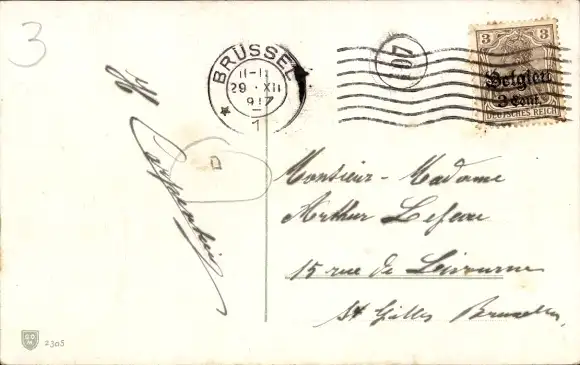 3
BRÜSSEL
11-12
29 · XII
917
1
40
3 3
Belgien
3 Cent.
DEUTSCHES REICH
D
Monsieur - Madame
Arthur Lefeau
15 rue de Livourne
St Gilles Bruxelles
2305